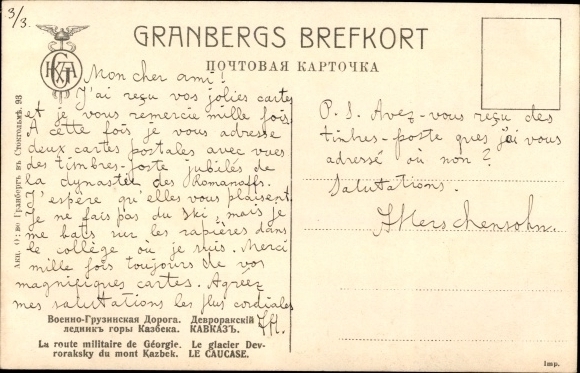 3/3.
GRANBERGS BREFKORT
ПОЧТОВАЯ КАРТОЧКА
Mon cher ami!
J'ai reçu vos jolies cartes
et je vous remercie mille fois.
A cette fois je vous adresse
deux cartes postales avec vues
des timbres-poste jubilés de
la dynastie des Romanoffs.
J'espère qu'elles vous plaisent.
Je ne fais pas du ski, mais je
me bats sur les rapières dans
le collège où je suis. Merci
mille fois toujours de vos
magnifiques cartes. Agréez
mes salutations les plus cordiales
P. S. Avez-vous reçu des
timbres-poste ques j'ai vous
adressé où non?
Salutations.
Акц. О; во Гранбергъ въ Стокгольмѣ. 98
Военно-Грузинская Дорога. Девроракскій
ледникъ горы Казбека. КАВКАЗЪ.
La route militaire de Géorgie. Le glacier Dev-
roraksky du mont Kazbek. LE CAUCASE.
Imp.